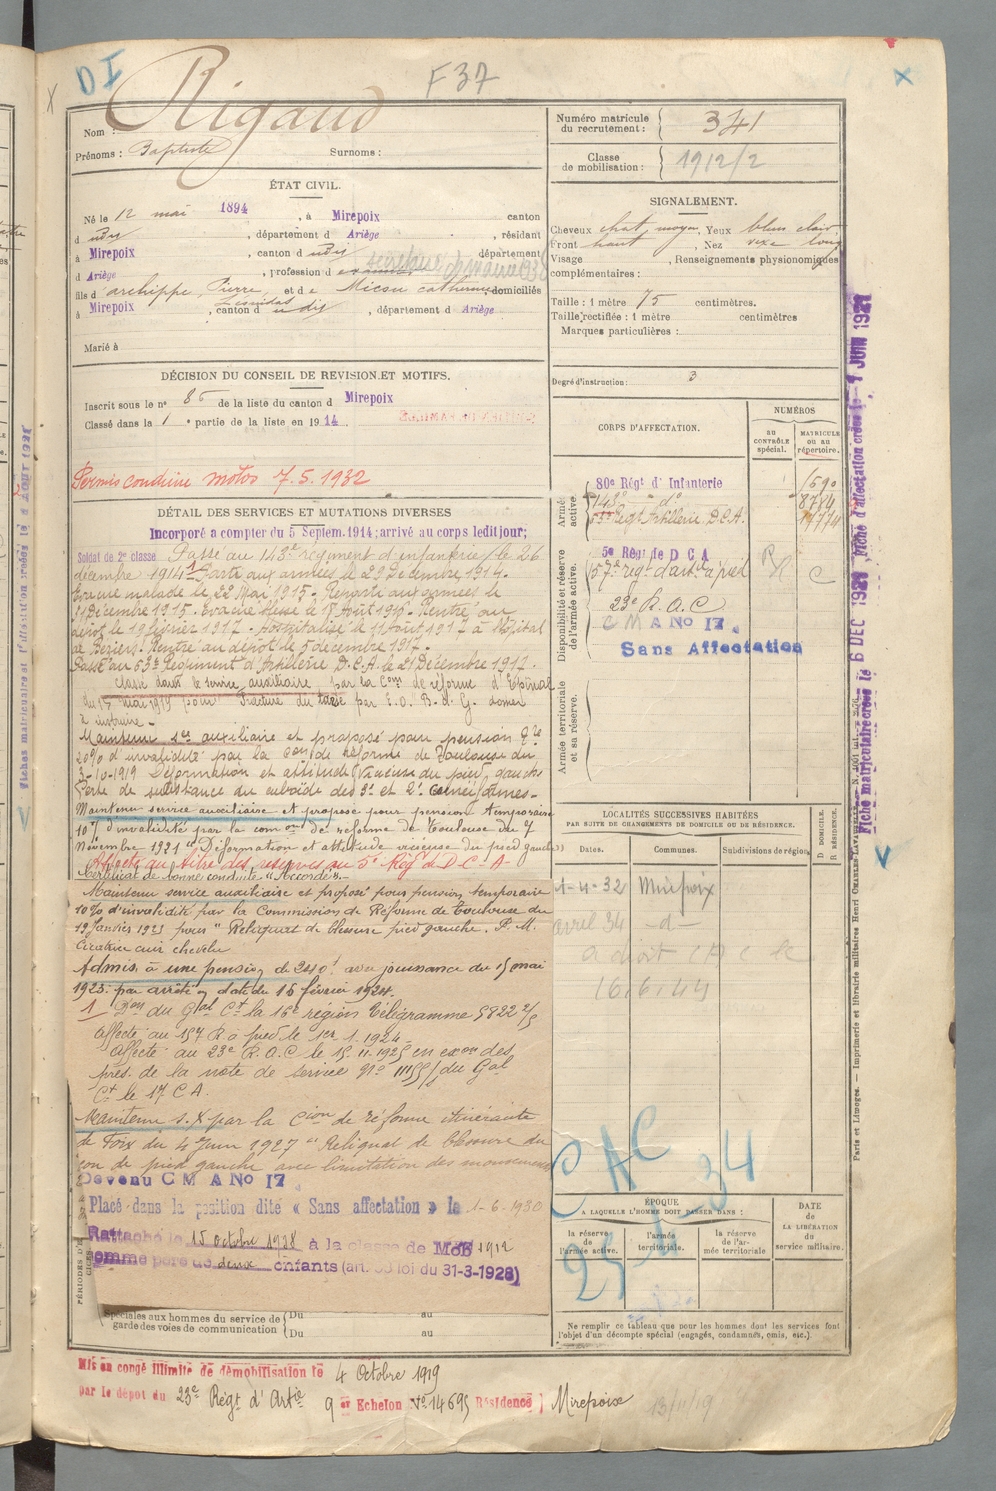 DI
F 37
Rigaud
Nom :
Prénoms : Baptiste Surnoms :
Numéro matricule du recrutement : 341
Classe de mobilisation : 1912/2
ÉTAT CIVIL.
Né le 12 mai 1894, à Mirepoix canton
d udy, département d Ariège, résidant
à Mirepoix, canton d udy département
d Ariège, profession d
secrétaire de mairie 1938
fils d archippe, Pierre, Léonidas et d e Micou catherine domiciliés
à Mirepoix, canton d u dit, département d Ariège
Marié à
SIGNALEMENT.
Cheveux chat, moyen, Yeux bleu clair
Front haut, Nez vexe long
Visage , Renseignements physionomiques
complémentaires :
Taille : 1 mètre 75 centimètres.
Taille rectifiée : 1 mètre centimètres
Marques particulières :
Degré d'instruction : 3
DÉCISION DU CONSEIL DE REVISION ET MOTIFS.
Inscrit sous le n° 86 de la liste du canton d Mirepoix
Classé dans la 1 e partie de la liste en 1914
Permis conduire motos 7.5.1932
DÉTAIL DES SERVICES ET MUTATIONS DIVERSES
Incorporé a compter du 5 Septem. 1914; arrivé au corps ledit jour;
Soldat de 2e classe Passé au 143e régiment d'infanterie le 26
décembre 1914 1 Parti aux armées le 29 Décembre 1914.
Evacué malade le 22 Mai 1915. Reparti aux armées le
11 Décembre 1915. Evacué blessé le 18 Août 1916. Rentré au
dépôt le 19 février 1917. Hospitalisé le 11 Août 1917 à Hôpital
de Béziers. Rentré au dépôt le 5 décembre 1917.
Passé au 63e Régiment d'Artillerie D.C.A. le 21 Décembre 1917.
Classé dans le service auxiliaire par la Com de réforme d'Epinal
du 17 mai 1919 pour Fracture du tarse par E. O. B. d. G.
à instruire.
Maintenu sce auxiliaire et proposé pour pension
20% d'invalidité par la Com de Réforme de Toulouse du
3-10-1919 Déformation et attitude vicieuse du pied gauche
Perte de substance du cuboïde des 3e et 2e cunéiformes
Maintenu service auxiliaire et proposé pour pension temporaire
10% d'invalidité par la comon de réforme de Toulouse du 7
Novembre 1921 "Déformation et attitude vicieuse du pied gauche"
Affecté au titre des réserves au 5e Régt de D.C.A.
Certificat de bonne conduite "Accordé".
Maintenu service auxiliaire et proposé pour pension temporaire
10% d'invalidité par la Commission de Réforme de Toulouse du
19 Janvier 1923 pour "Reliquat de blessure pied gauche. P. M.
Cicatrice cuir chevelu
Admis à une pension de 240f avec jouissance du 15 mai
1923 par arrêté en date du 15 février 1924.
1 Don du Gal Ct la 16e région Télégramme 5822 2/5
Affecté au 157 R. à pied le 1er 1.1924
Affecté au 23e R.A.C le 15.11.1925 en exon des
pres. de la note de service N° 1115/1 du Gal
Ct le 17 C A.
Maintenu S.X par la Cion de réforme itinérante
de Foix du 4 Juin 1927 "Reliquat de blessure du
cou de pied gauche avec limitation des mouvements
Devenu C M A No 17
Placé dans la position dité « Sans affectation » le 1-6-1930
Rattaché le 15 octobre 1928 à la classe de Mob 1912
comme père de deux enfants (art. 58 loi du 31-3-1928)
PÉRIODES D'EXERCICES
Spéciales aux hommes du service de garde des voies de communication
Du au
Du au
CORPS D'AFFECTATION.
NUMÉROS
au contrôle spécial.
MATRICULE ou au répertoire.
Armée active.
80e Régt d'Infanterie 1690
143e " d° 8784
63e Régt Artillerie D.C.A.
Disponibilité et réserve de l'armée active.
5e Régt de D C A
157e régt d'artie à pied
23e R.A.C
C M A No 17
Sans Affectation
Armée territoriale et sa réserve.
LOCALITÉS SUCCESSIVES HABITÉES
PAR SUITE DE CHANGEMENTS DE DOMICILE OU DE RÉSIDENCE.
Dates. Communes. Subdivisions de région
D DOMICILE. R RÉSIDENCE.
1-4-32 Mirepoix
avril 34 -d-
16.6.44
CAC 34
ÉPOQUE
A LAQUELLE L'HOMME DOIT PASSER DANS :
la réserve de l'armée active.
l'armée territoriale.
la réserve de l'armée territoriale
DATE DE LA LIBÉRATION du service militaire.
Ne remplir ce tableau que pour les hommes dont les services font
l'objet d'un décompte spécial (engagés, condamnés, omis, etc.)
Mis en congé illimité de démobilisation le 4 Octobre 1919
par le dépôt du 23e Régt d'Artie 9 er Echelon N° 14695 Résidence ) Mirepoix
13/11/19
Fiche matriculaire créée le 6 DEC 1928, Fiche d'affectation créée le 1 JUIN 1929
Paris et Limoges. — Imprimerie et librairie militaires Henri CHARLES-LAVAUZELLE